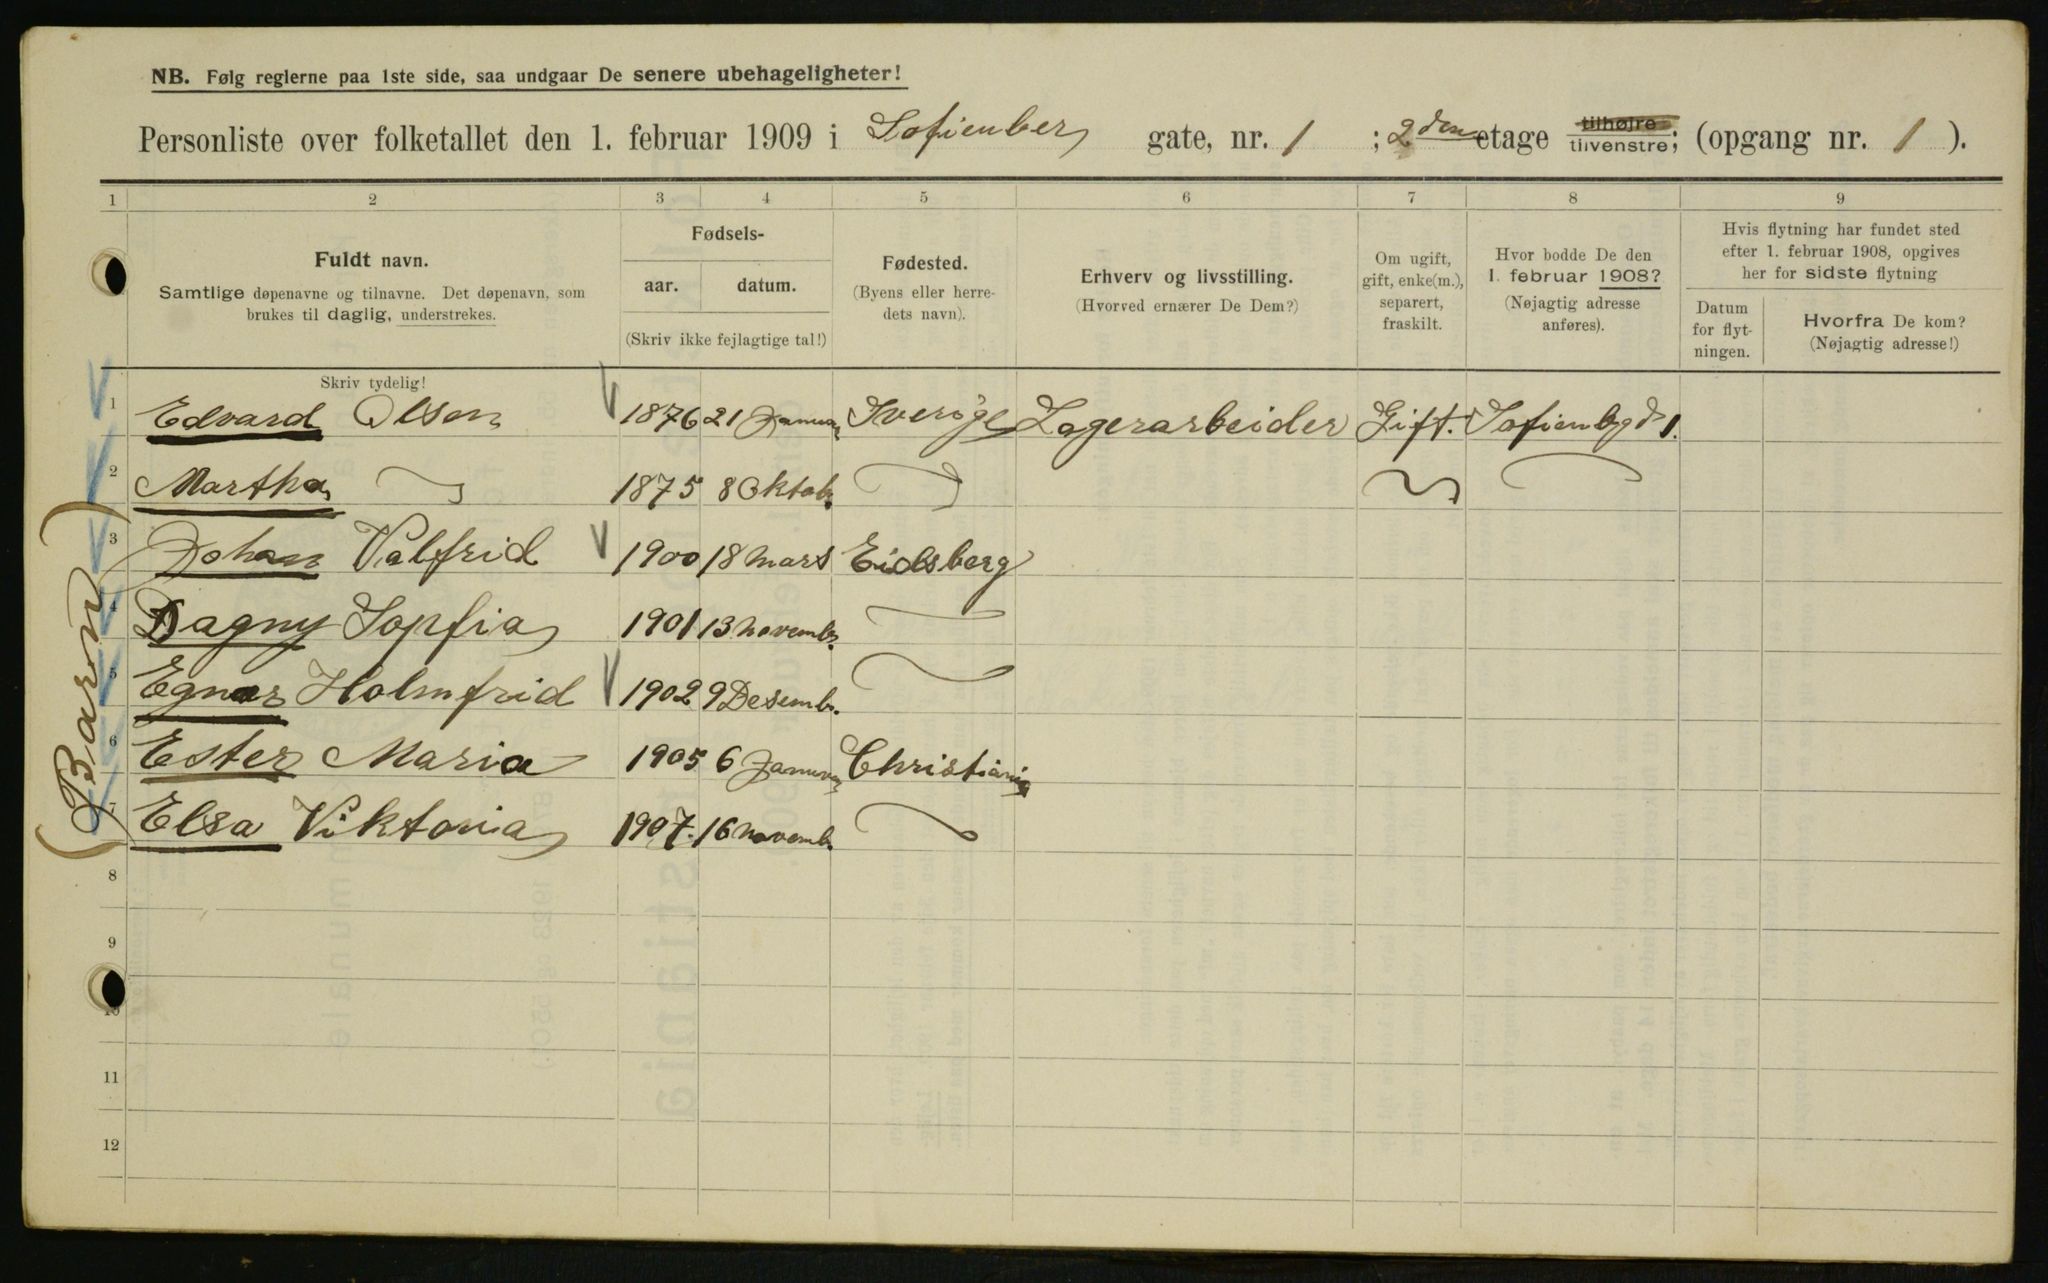 NB. Følg reglerne paa 1ste side, saa undgaar De senere ubehageligheter!
Personliste over folketallet den 1. februar 1909 i Sofienberg gate, nr. 1 ; 2den etage tilhøjre tilvenstre; (opgang nr. 1 ).
1 2 3 4 5 6 7 8 9
Fuldt navn.
Samtlige døpenavne og tilnavne. Det døpenavn, som
brukes til daglig, understrekes.
Fødsels-
aar. datum.
(Skriv ikke fejlagtige tal!)
Fødested.
(Byens eller herre-
dets navn).
Erhverv og livsstilling.
(Hvorved ernærer De Dem?)
Om ugift,
gift, enke(m.),
separert,
fraskilt.
Hvor bodde De den
1. februar 1908?
(Nøjagtig adresse
anføres).
Hvis flytning har fundet sted
efter 1. februar 1908, opgives
her for sidste flytning
Datum
for flyt-
ningen.
Hvorfra De kom?
(Nøjagtig adresse!)
Skriv tydelig!
1 Edvard Olsen 1876 21 Januar Sverige Lagerarbeider Gift. Sofienbgd 1.
2 Martha 1875 8 Oktob.
(Barn)
3 Johan Valfrid 1900 18 Mars Eidsberg
4 Dagny Sopfia 1901 13 Novemb.
5 Egnar Holmfrid 1902 9 Desemb.
6 Ester Maria 1905 6 Januar Christiania
7 Elsa Viktoria 1907. 16 Novemb.
8
9
10
11
12